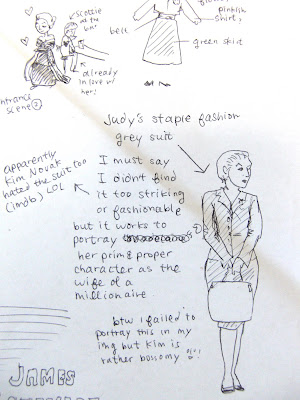 Scottie
at the
bar
pinkish
shirt,
belt
green skirt
already
in love w/
her!
entrance
scene ②
Judy's staple fashion
grey suit
apparently
Kim Novak
hated the suit too
(imdb) LOL
I must say
I didn't find
it too striking
or fashionable
but it works to
portray
her prim & proper
character as the
wife of a
millionaire
btw I failed to
portray this in my
img but Kim is
rather bosomy
JAMES